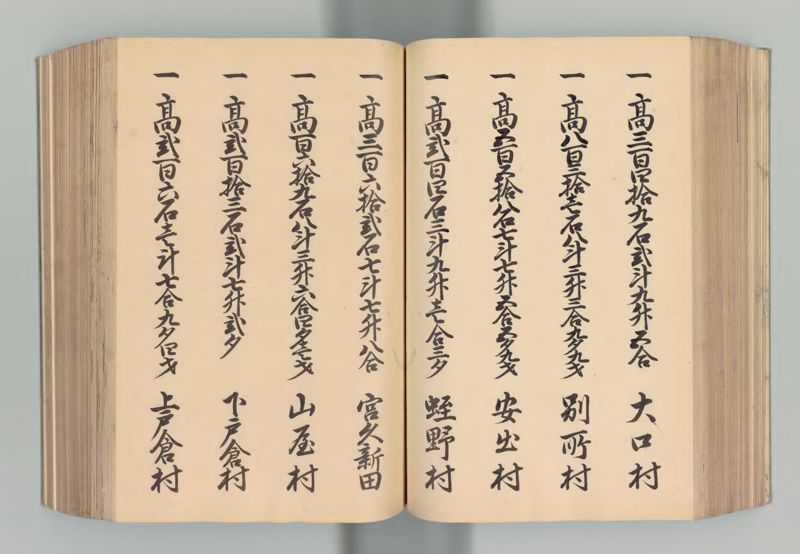 一 高三百四拾九石弐斗九升五合 大口村
一 高八百三拾壱石八斗三升三合九夕九才 別所村
一 高五百五拾八石七斗七升五合五夕九才 安出村
一 高弐百四石三斗九升壱合三夕 蛭野村
一 高三百六拾弐石七斗七升八合 宮久新田
一 高百六拾九石八斗三升六合四夕壱才 山屋村
一 高弐百拾三石弐斗七升弐夕 下戸倉村
一 高弐百六石壱斗七合九夕四才 上戸倉村